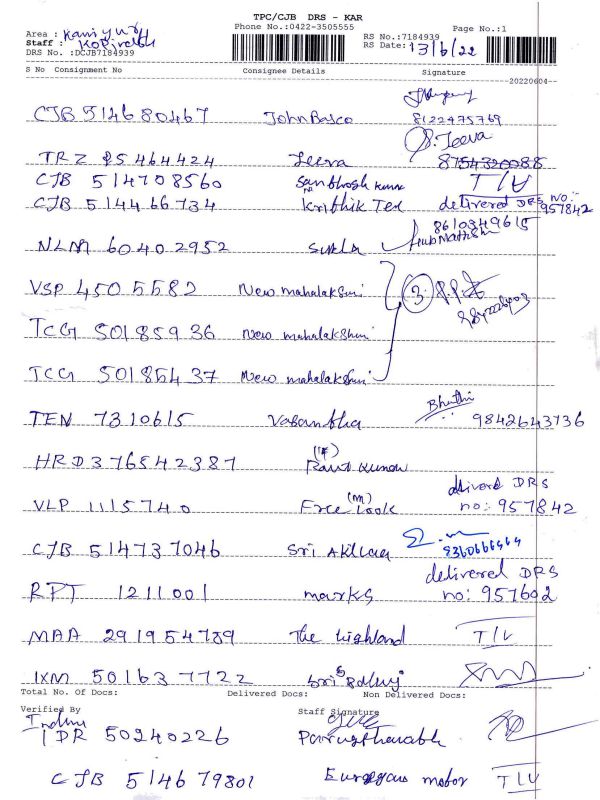 TPC/CJB DRS - KAR
Phone No.:0422-3505555
Page No.:1
Area : Kaniyur
RS No.:7184939
Staff :
RS Date: 13/6/22
DRS No. :DCJB7184939
S No Consignment No Consignee Details Signature
20220604
CJB 514680467 John Basco 8122475769
S. Jeeva
TRZ 85464424 Jeeva 8754320088
CJB 514708560 Santhosh Kumar T/V
CJB 514466734 Krithik Tex delivered DRS no:- 957842
8610349615
NLM 60402952
VSP 4505582 New mahalakshmi 3
TCG 50185936 New mahalakshmi
TCG 50185437 New mahalakshmi
TEN 7310615 Vasantha 9842643736
HRD376542387
VLP 1115740 Free Look (M) delivered DRS no:- 957842
CJB 514737046 Sri Akilaa
RPT 1211001 marks delivered DRS no: 957602
MAA 291954789 The highland T/V
IXM 501637722 Sri Balaji
Total No. Of Docs: Delivered Docs: Non Delivered Docs:
Verified By Staff Signature
IDR 50240226
CJB 514679801 motor T/V